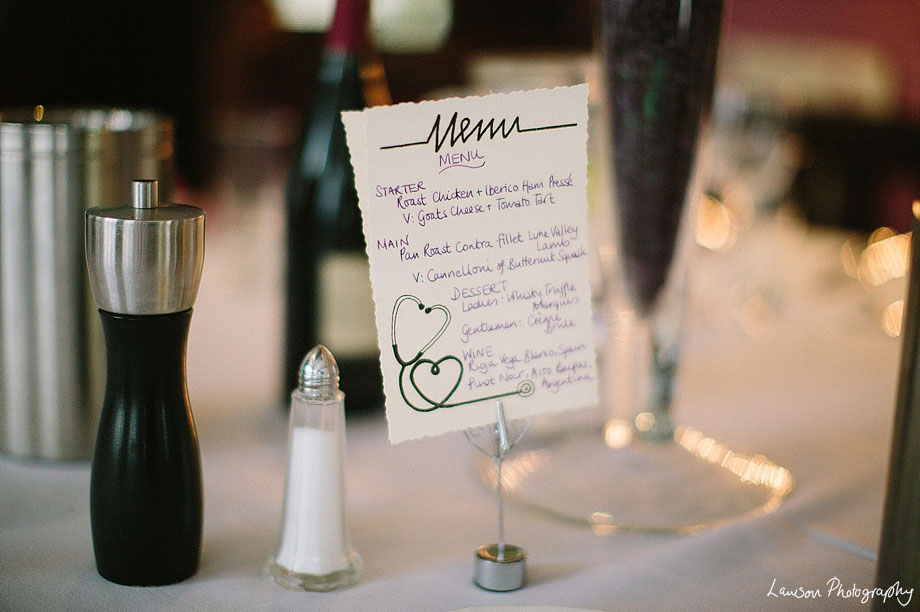 Menu
MENU
STARTER
Roast Chicken + Iberico Ham Pressé
V: Goats Cheese + Tomato Tart
MAIN
Pan Roast Contra fillet Lune Valley
Lamb
V: Cannelloni of Butternut Squash
DESSERT
Ladies: Whisky Truffle
Marquis
Gentlemen: Crème
Brulé
WINE
Rioja Vega Blanco, Spain
Pinot Noir, Alto
Argentina
Lawson Photography